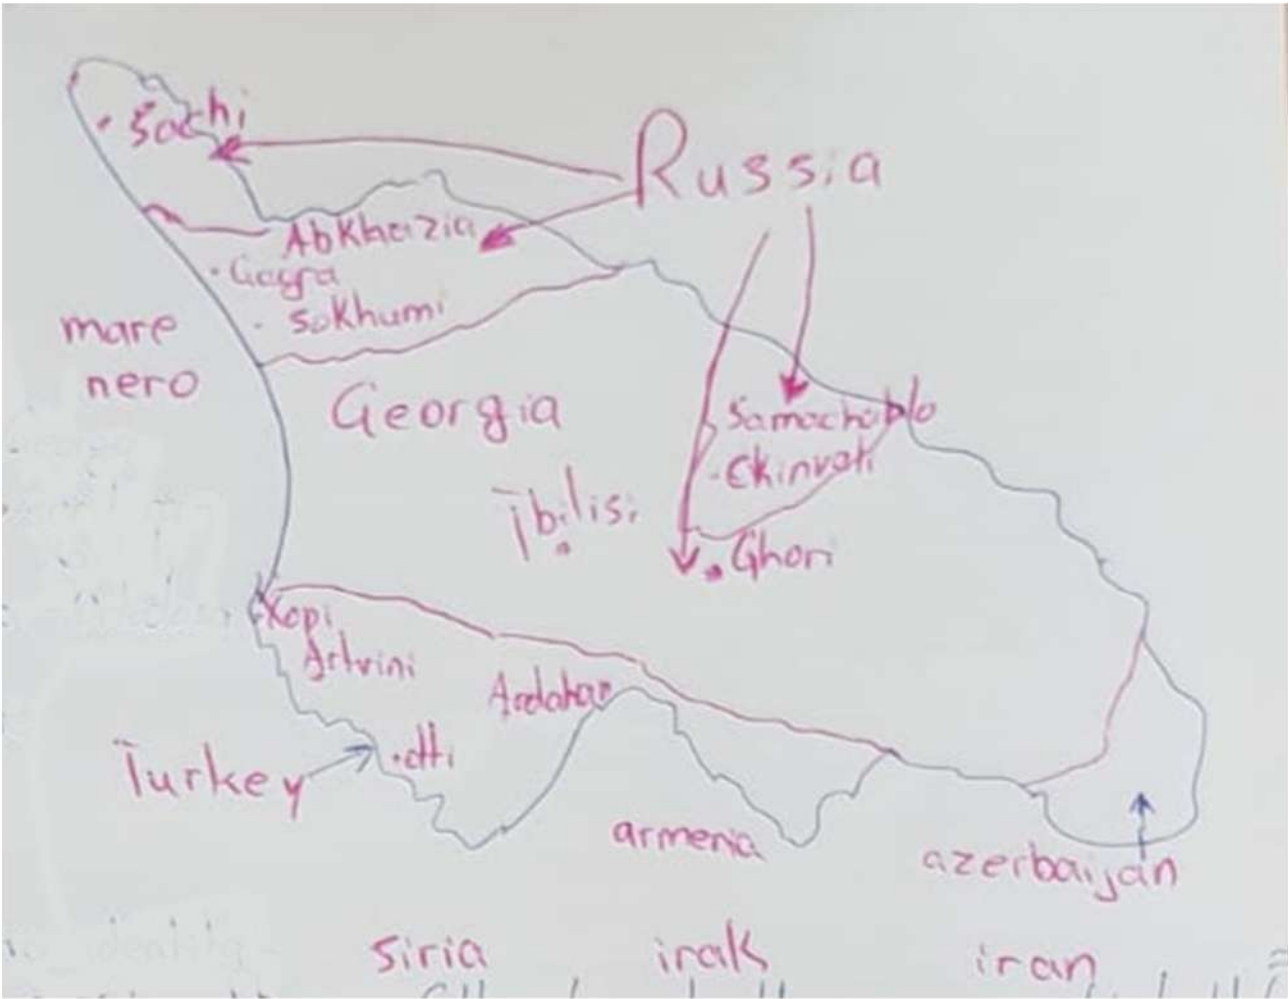 Sochi
Russia
Abkhazia
Gagra
Sokhumi
mare
nero
Georgia
Samachablo
Ckinvati
Tbilisi
Ghori
Xopi
Artvini
Ardahan
Turkey
armenia
azerbaijan
siria
irak
iran